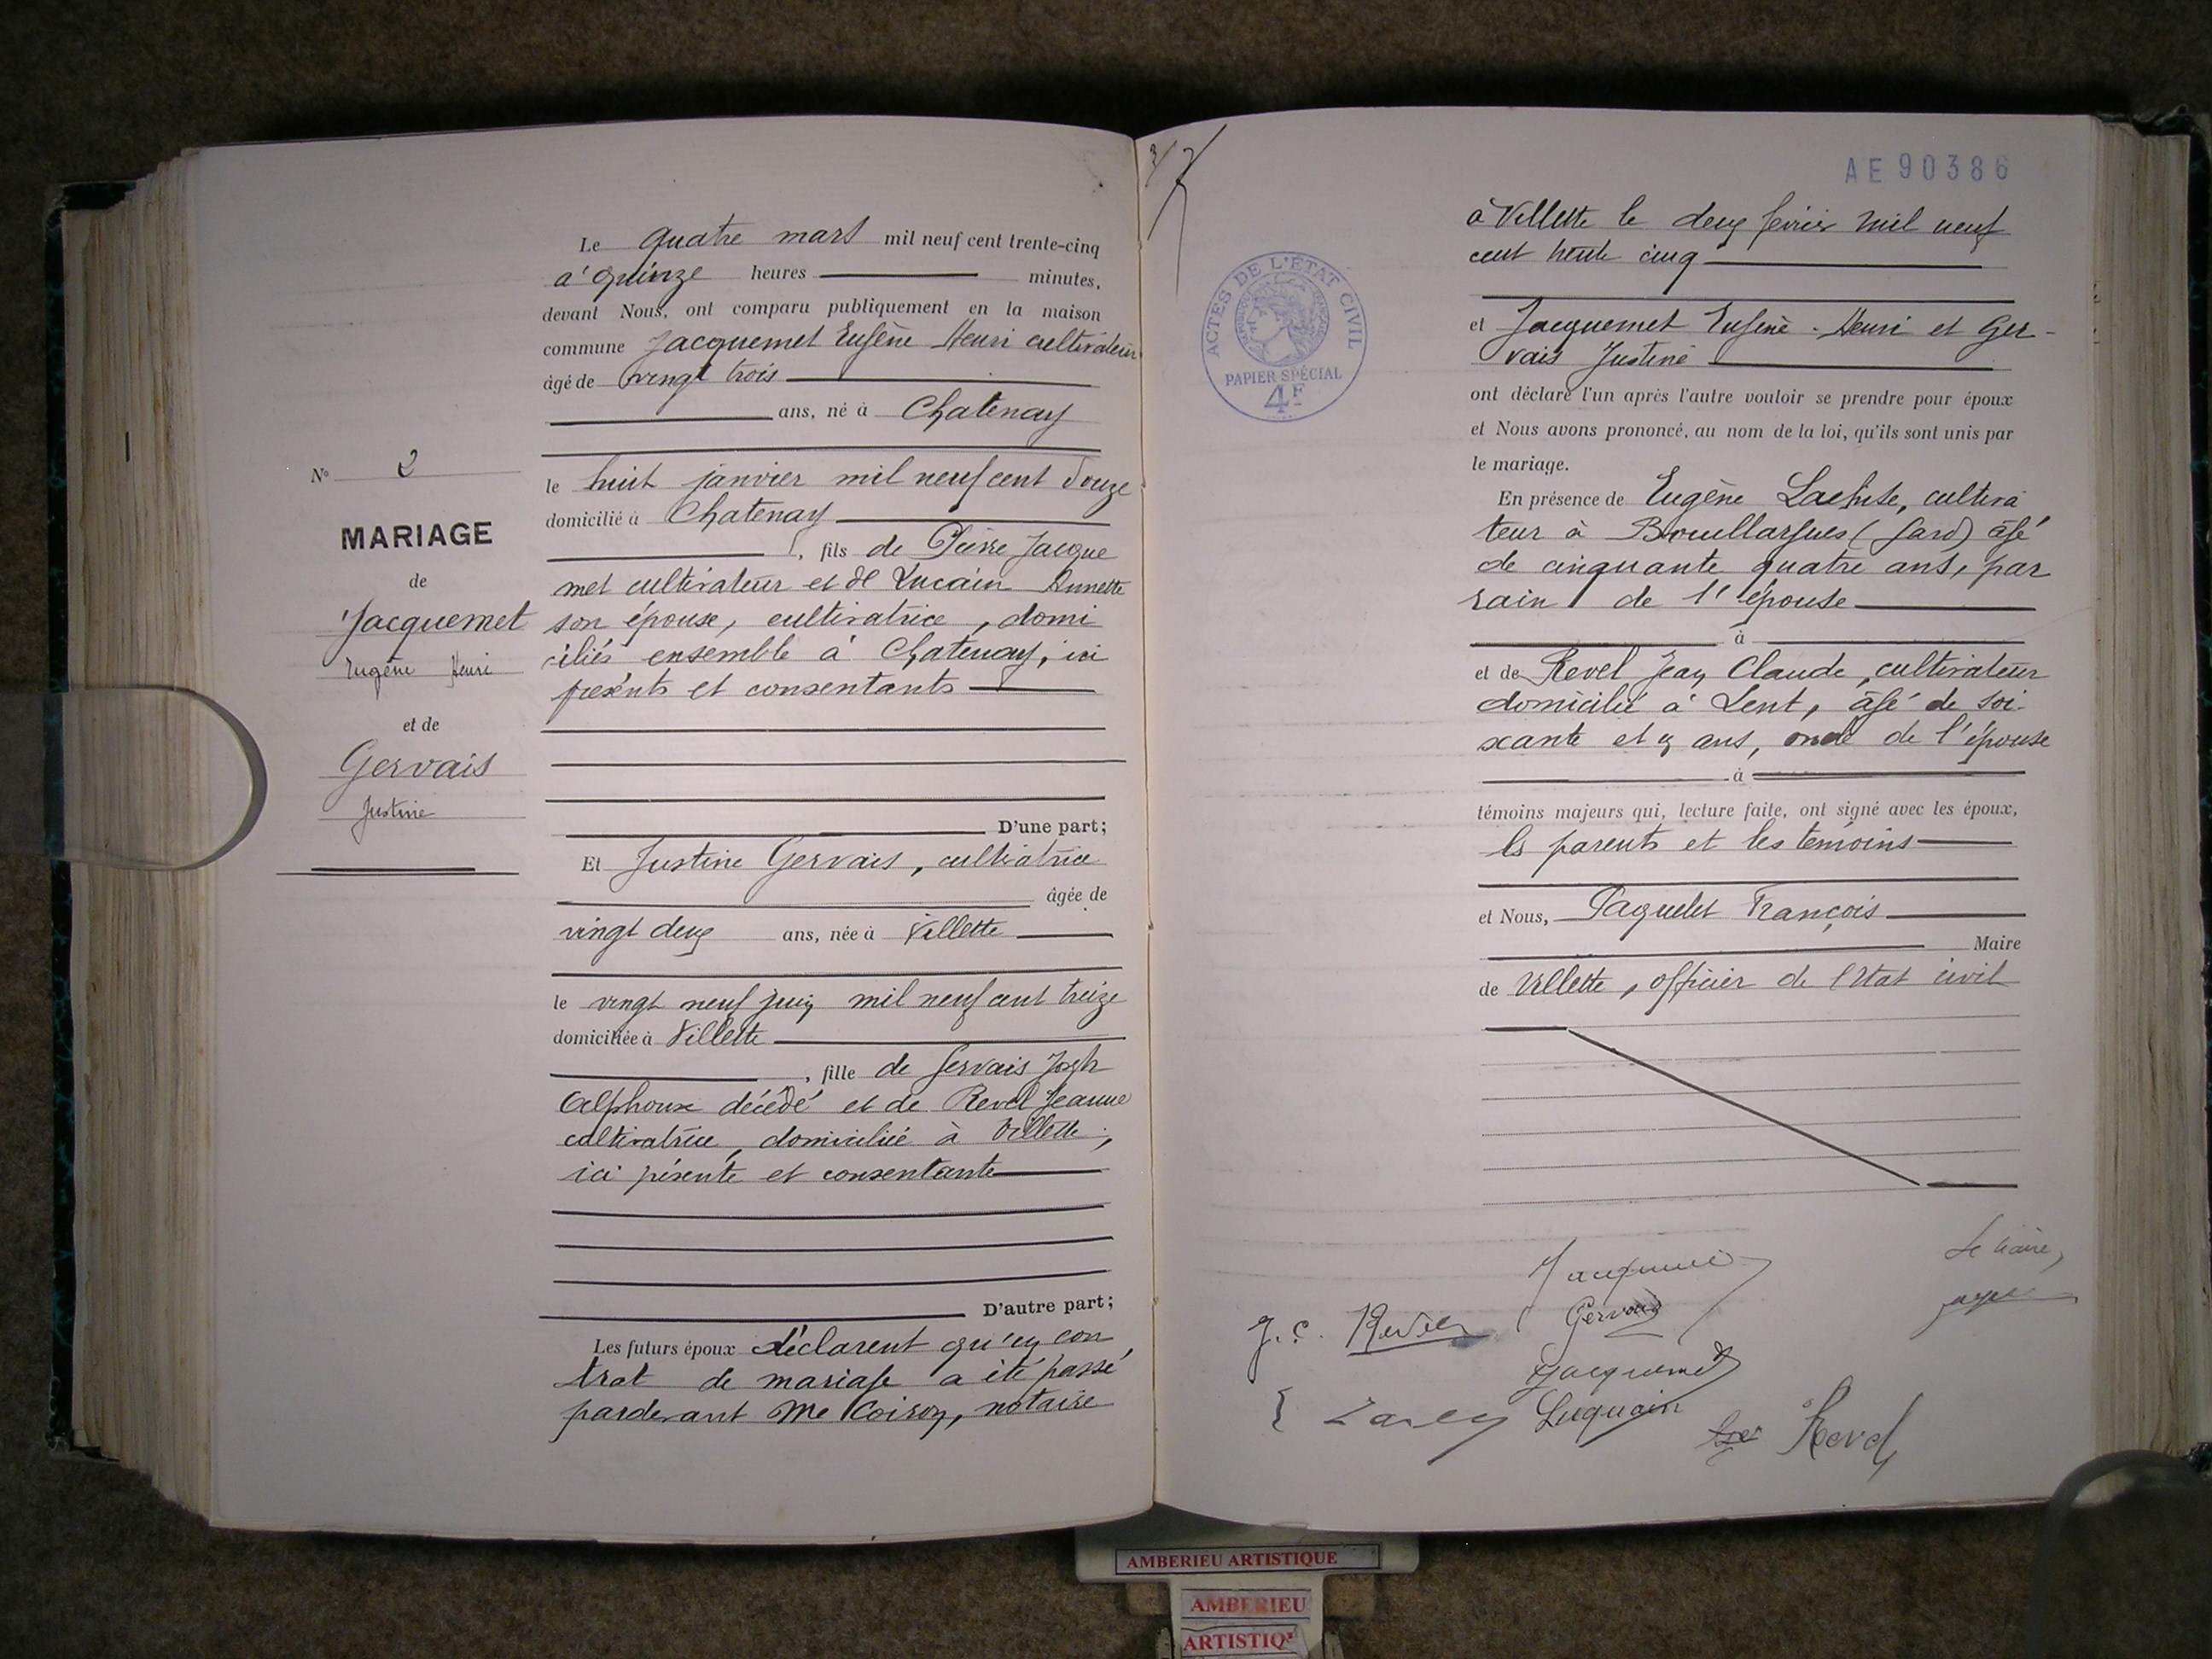 Le quatre mars mil neuf cent trente-cinq
à quinze heures minutes,
devant Nous, ont comparu publiquement en la maison
commune Jacquemet Eugène Henri cultivateur
âgé de vingt trois
ans, né à Chatenay
le huit janvier mil neuf cent douze
domicilié à Chatenay
, fils de Pierre Jacque
met cultivateur et de Lucain Annette
son épouse, cultivatrice, domi
ciliés ensemble à Chatenay, ici
présents et consentants
D'une part;
Et Justine Gervais, cultivatrice
âgée de
vingt deux ans, née à Villette
le vingt neuf juin mil neuf cent treize
domiciliée à Villette
, fille de Gervais Joseph
Alphonse décédé et de Revel Jeanne
cultivatrice, domiciliée à Villette,
ici présente et consentante
D'autre part;
Les futurs époux déclarent qu'un con
trat de mariage a été passé
pardevant Me Coiron, notaire
N° 2
MARIAGE
de
Jacquemet
Eugène Henri
et de
Gervais
Justine
AE 90386
ACTES DE L'ETAT CIVIL
PAPIER SPÉCIAL
4F
à Villette le deux février mil neuf
cent trente cinq
et Jacquemet Eugène-Henri et Ger-
vais Justine
ont déclaré l'un après l'autre vouloir se prendre pour époux
et Nous avons prononcé, au nom de la loi, qu'ils sont unis par
le mariage.
En présence de Eugène, cultiva
teur à Bouillargues (Gard) âgé
de cinquante quatre ans, par
rain de l'épouse
à
et de Revel Jean Claude, cultivateur
domicilié à Lent, âgé de soi-
xante et un ans, oncle de l'épouse
à
témoins majeurs qui, lecture faite, ont signé avec les époux,
les parents et les témoins
et Nous, Paquelet François
Maire
de Villette, officier de l'Etat civil
Le Maire,
J. C. Revel
Gervais
Jacquemet
Luquain
Revel
AMBERIEU ARTISTIQUE
AMBERIEU
ARTISTIQ